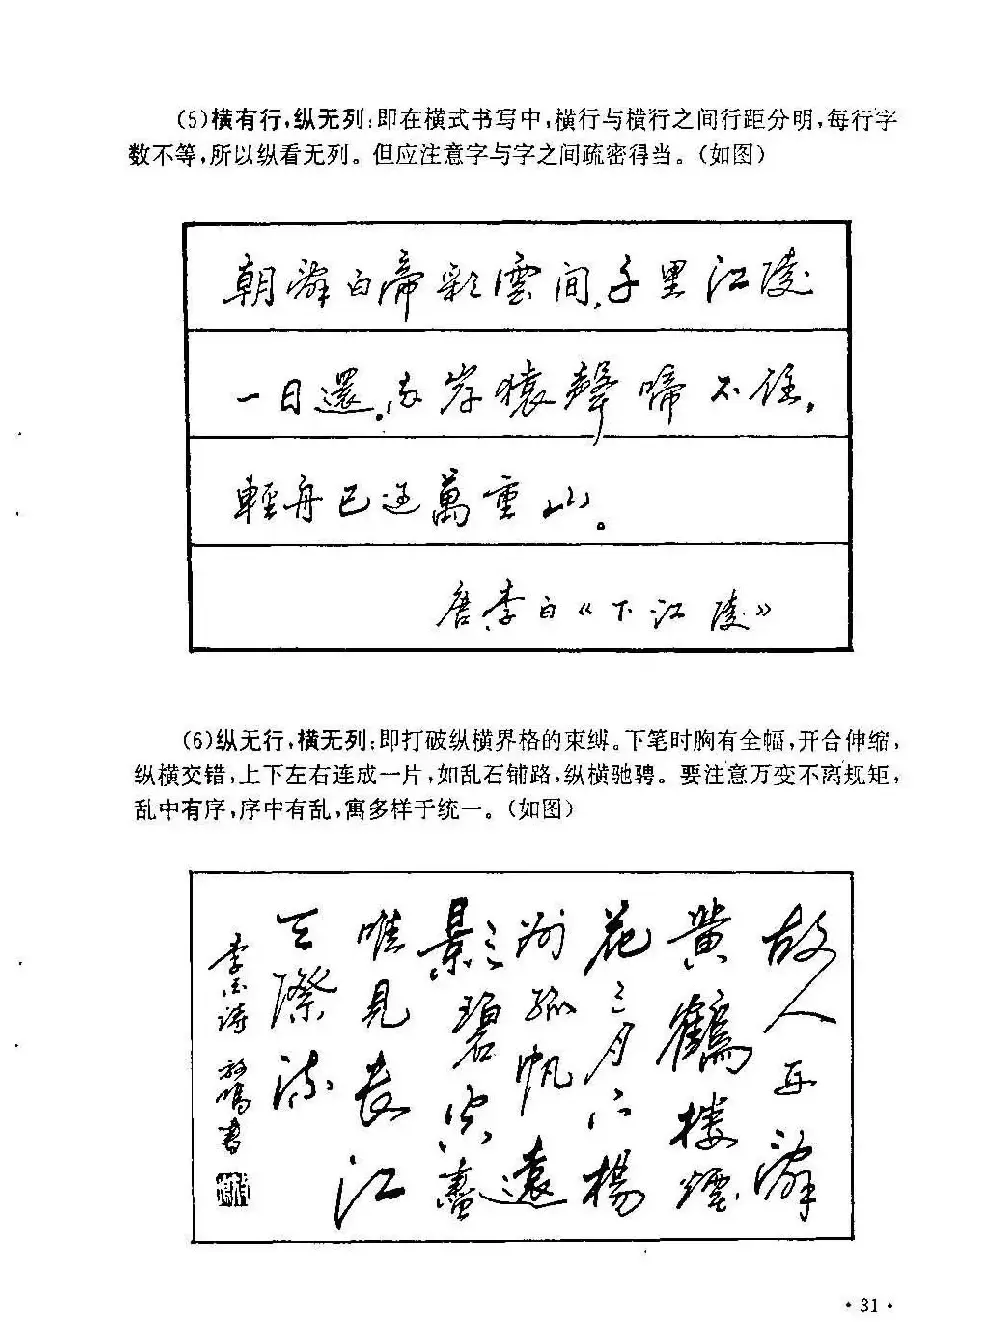 (5)横有行,纵无列:即在横式书写中,横行与横行之间行距分明,每行字
数不等,所以纵看无列。但应注意字与字之间疏密得当。(如图)
朝辭白帝彩雲間,千里江陵
一日還。兩岸猿聲啼不住,
輕舟已過萬重山。
唐李白《下江陵》
(6)纵无行,横无列:即打破纵横界格的束缚。下笔时胸有全幅,开合伸缩,
纵横交错,上下左右连成一片,如乱石铺路,纵横驰骋。要注意万变不离规矩,
乱中有序,序中有乱,寓多样于统一。(如图)
故人西辭
黄鶴樓煙
花三月下楊
州孤帆遠
影碧空盡
唯見長江
天際流
李白诗 書
·31·